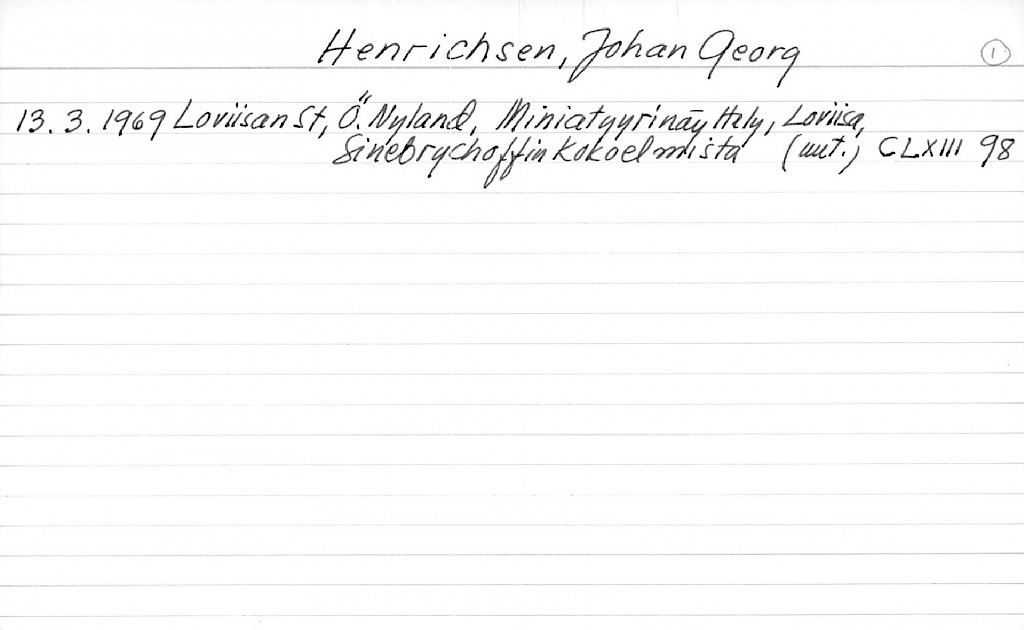 Henrichsen, Johan Georg 1
13. 3. 1969 Loviisan St, Ö. Nyland, Miniatyyrinäyttely, Loviisa,
Sinebrychoffin kokoelmista (uut.) CLXIII 98